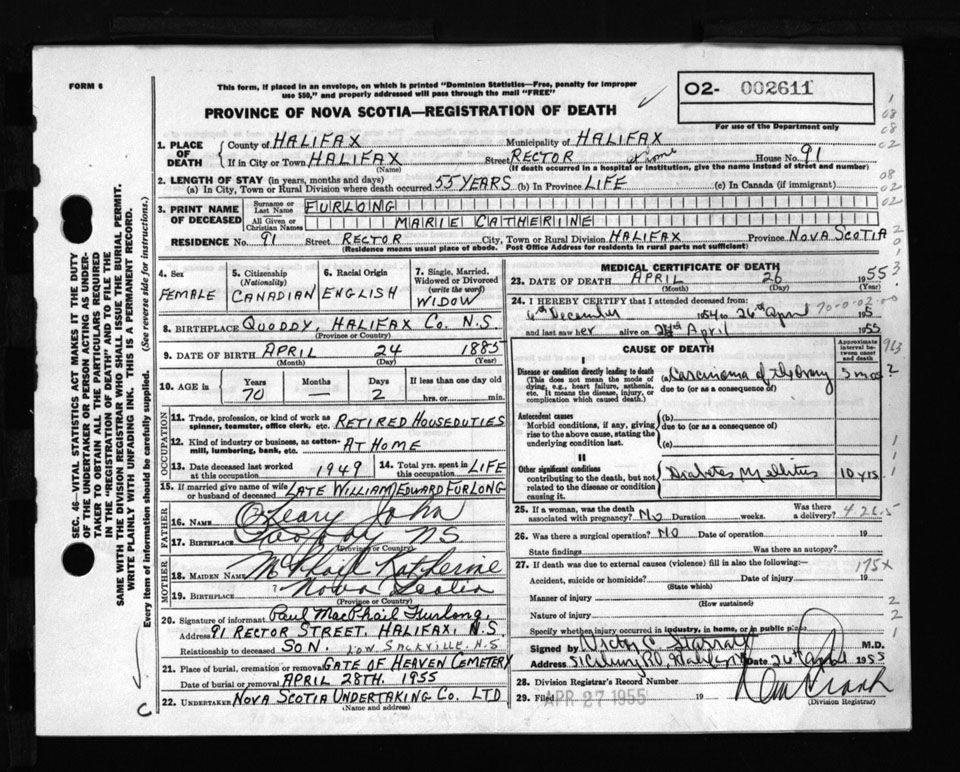 FORM 6
This form, if placed in an envelope, on which is printed "Dominion Statistics—Free, penalty for improper
use $50," and properly addressed will pass through the mail "FREE"
PROVINCE OF NOVA SCOTIA—REGISTRATION OF DEATH
02- 002611
For use of the Department only
SEC. 46—VITAL STATISTICS ACT MAKES IT THE DUTY
OF THE UNDERTAKER OR PERSON ACTING AS UNDER-
TAKER TO OBTAIN ALL THE PARTICULARS REQUIRED
IN THE "REGISTRATION OF DEATH" AND TO FILE THE
SAME WITH THE DIVISION REGISTRAR WHO SHALL ISSUE THE BURIAL PERMIT.
WRITE PLAINLY WITH UNFADING INK. THIS IS A PERMANENT RECORD.
Every item of information should be carefully supplied. (See reverse side for instructions.)
1. PLACE OF DEATH
County of HALIFAX Municipality of HALIFAX
If in City or Town HALIFAX Street RECTOR at home House No. 91
(Name) (If death occurred in a hospital or institution, give the name instead of street and number)
2. LENGTH OF STAY (in years, months and days)
(a) In City, Town or Rural Division where death occurred 55 YEARS (b) In Province LIFE (c) In Canada (if immigrant)
3. PRINT NAME OF DECEASED
Surname or Last Name FURLONG
All Given or Christian Names MARIE CATHERINE
RESIDENCE No. 91 Street RECTOR City, Town or Rural Division HALIFAX Province NOVA SCOTIA
(Residence means usual place of abode. Post Office Address for residents in rural parts not sufficient)
4. Sex FEMALE
5. Citizenship (Nationality) CANADIAN
6. Racial Origin ENGLISH
7. Single, Married, Widowed or Divorced (write the word) WIDOW
8. BIRTHPLACE QUODDY, HALIFAX Co. N.S.
(Province or Country)
9. DATE OF BIRTH APRIL 24 1885
(Month) (Day) (Year)
10. AGE in Years 70 Months — Days 2 If less than one day old hrs. or min.
OCCUPATION
11. Trade, profession, or kind of work as spinner, teamster, office clerk, etc. RETIRED HOUSEDUTIES
12. Kind of industry or business, as cotton-mill, lumbering, bank, etc. AT HOME
13. Date deceased last worked at this occupation 1949 14. Total yrs. spent in this occupation LIFE
15. If married give name of wife or husband of deceased LATE WILLIAM EDWARD FURLONG
FATHER
16. Name O'Leary John
17. Birthplace N.S.
(Province or Country)
MOTHER
18. Maiden Name McPhail Katherine
19. Birthplace Nova Scotia
(Province or Country)
20. Signature of informant Paul MacPhail Furlong
Address 91 RECTOR STREET, HALIFAX, N.S.
Relationship to deceased SON. LOW. SACKVILLE. N.S
21. Place of burial, cremation or removal GATE OF HEAVEN CEMETERY
Date of burial or removal APRIL 28TH. 1955
22. UNDERTAKER NOVA SCOTIA UNDERTAKING CO. LTD
(Name and address)
MEDICAL CERTIFICATE OF DEATH
23. DATE OF DEATH APRIL 26 1955
(Month) (Day) (Year)
24. I HEREBY CERTIFY that I attended deceased from:
6th December 1954 to 26th April 195
and last saw her alive on April 1955
CAUSE OF DEATH
Approximate interval between onset and death
I
Disease or condition directly leading to death
(This does not mean the mode of dying, e.g., heart failure, asthenia, etc. It means the disease, injury, or complication which caused death.)
(a) Carcinoma of the Ovary 5 mos
due to (or as a consequence of)
Antecedent causes
Morbid conditions, if any, giving rise to the above cause, stating the underlying condition last.
(b)
due to (or as a consequence of)
(c)
II
Other significant conditions
contributing to the death, but not related to the disease or condition causing it.
Diabetes Mellitus 10 yrs.
25. If a woman, was the death associated with pregnancy? NO Duration weeks. Was there a delivery?
26. Was there a surgical operation? NO Date of operation 19
State findings Was there an autopsy?
27. If death was due to external causes (violence) fill in also the following:— 175x
Accident, suicide or homicide? Date of injury 19
(State which)
Manner of injury
(How sustained)
Nature of injury
Specify whether injury occurred in industry, in home, or in public place
Signed by Victor C. M.D.
Address Date 26th April 1955
28. Division Registrar's Record Number
29. Filed APR 27 1955 19
(Division Registrar)